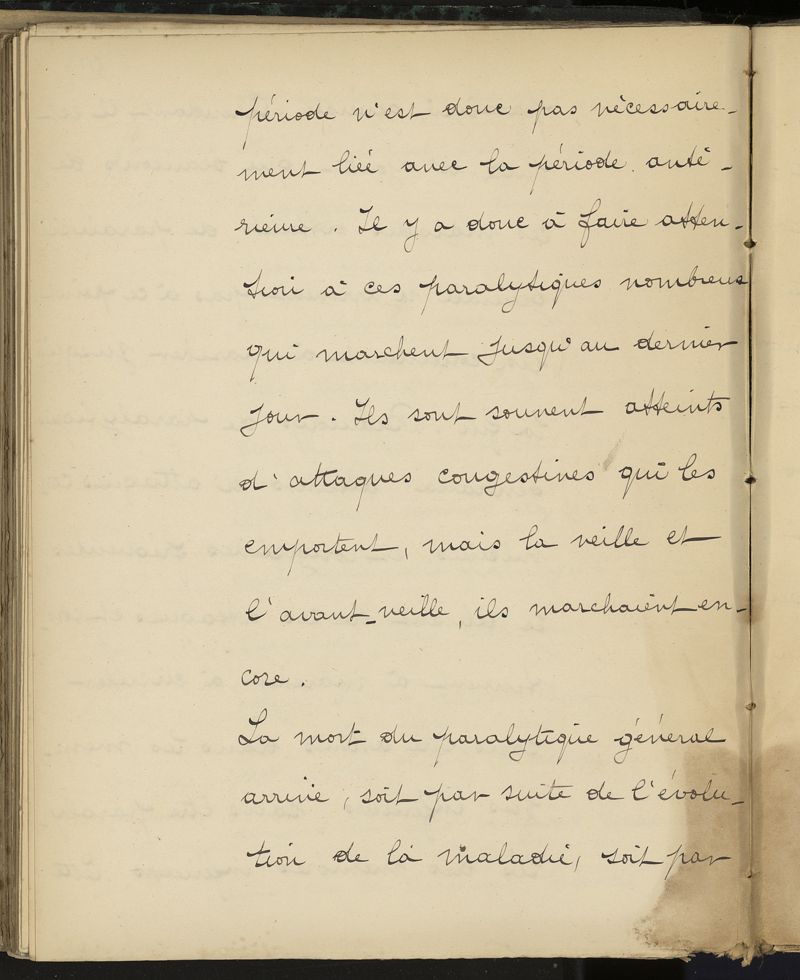 période n'est donc pas nécessaire-
ment liée avec la période anté-
rieure. Il y a donc à faire atten-
tion à ces paralytiques nombreux
qui marchent jusqu'au dernier
jour. Ils sont souvent atteints
d'attaques congestives qui les
emportent, mais la veille et
l'avant-veille, ils marchaient en-
core.
La mort du paralytique général
arrive, soit par suite de l'évolu-
tion de la maladie, soit par